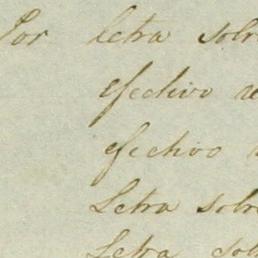 Por letra sobr
efectivo
efectivo
Letra sobre
Letra sob